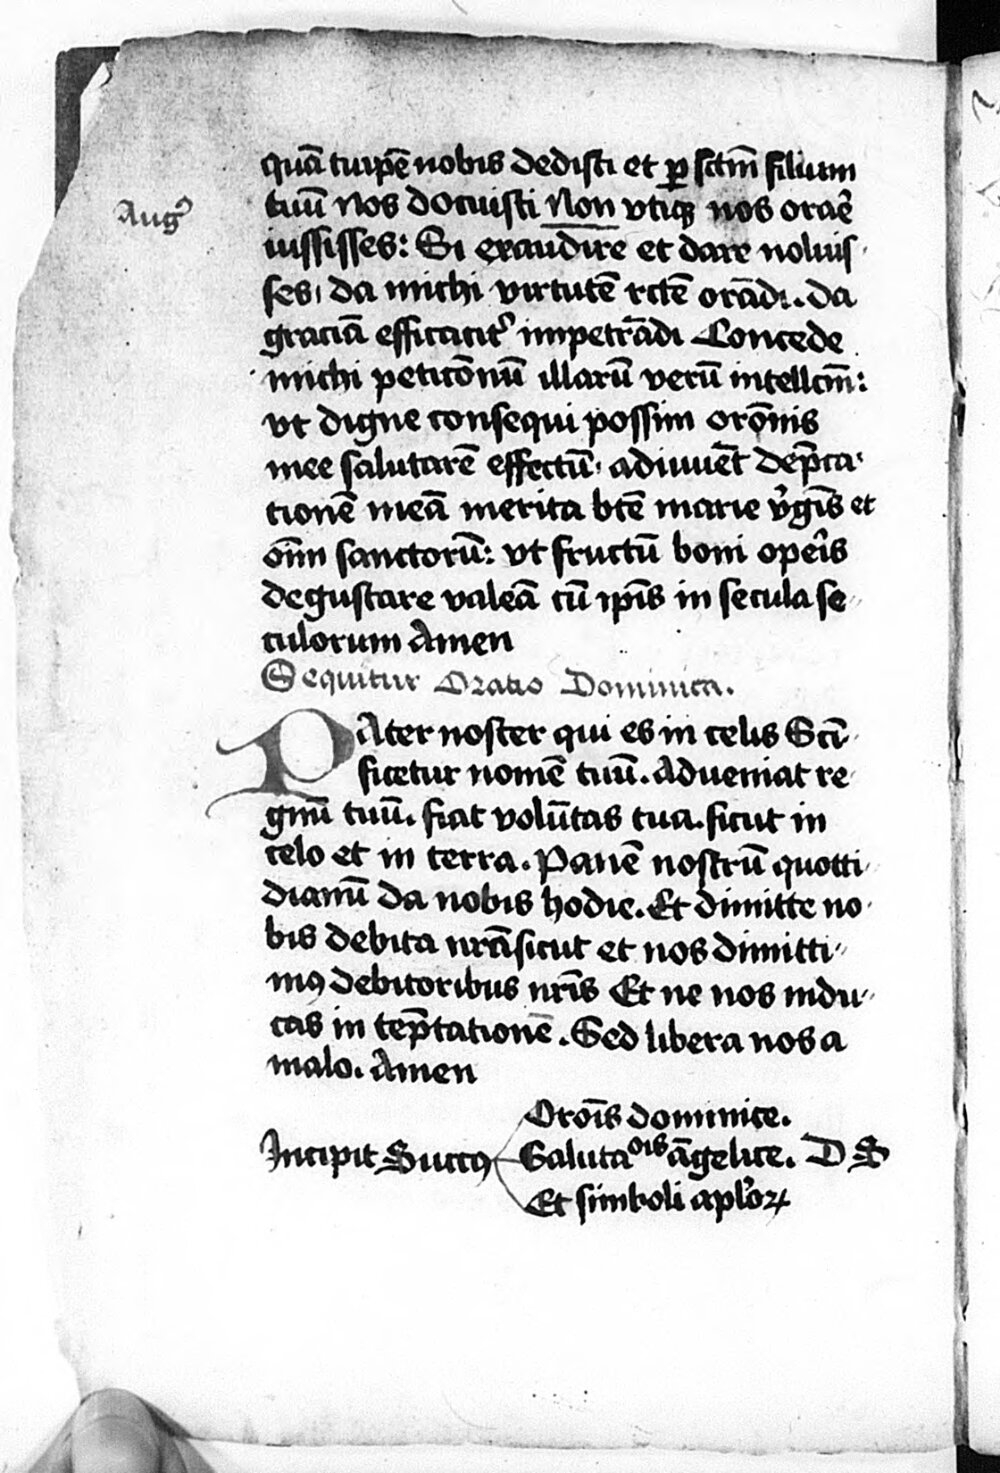 quā tuipē nobis dedisti et ꝑ sctm̄ filium
Augꝰ
tuū nos docuisti Non vtiqꝫ nos orare̅
iussisses: Si exaudire et dare noluis
ses, da michi virtutē rctē orādi. da
graciā efficacitʾ impetrādi Concede
michi peticōnū illarū verū intellcm̄:
vt digne consequi possim orōnis
mee salutarē effectū, adiuuēt dep̄ca
tionē meā merita btē marie vʾgīs et
oīm sanctorū: vt fructū boni opeʾis
degustare valeā cū ip̄is in secula se
culorum Amen
Sequitur Oratio Dominica.
PAter noster qui es in celis Scī
ficetur nomē tuū. Adueniat re
gnū tuū. fiat volūtas tua. sicut in
celo et in terra. Panē nostrū quotti
dianū da nobis hodie. Et dimitte no
bis debita nr̄a sicut et nos dimitti
mꝰ debitoribus nr̄is Et ne nos indu
cas in tep̄tationē. Sed libera nos a
malo. Amen
Orōis dominice.
Incipit Succꝰ Salutaois āgelice. D S
Et simboli aplʾoꝝ